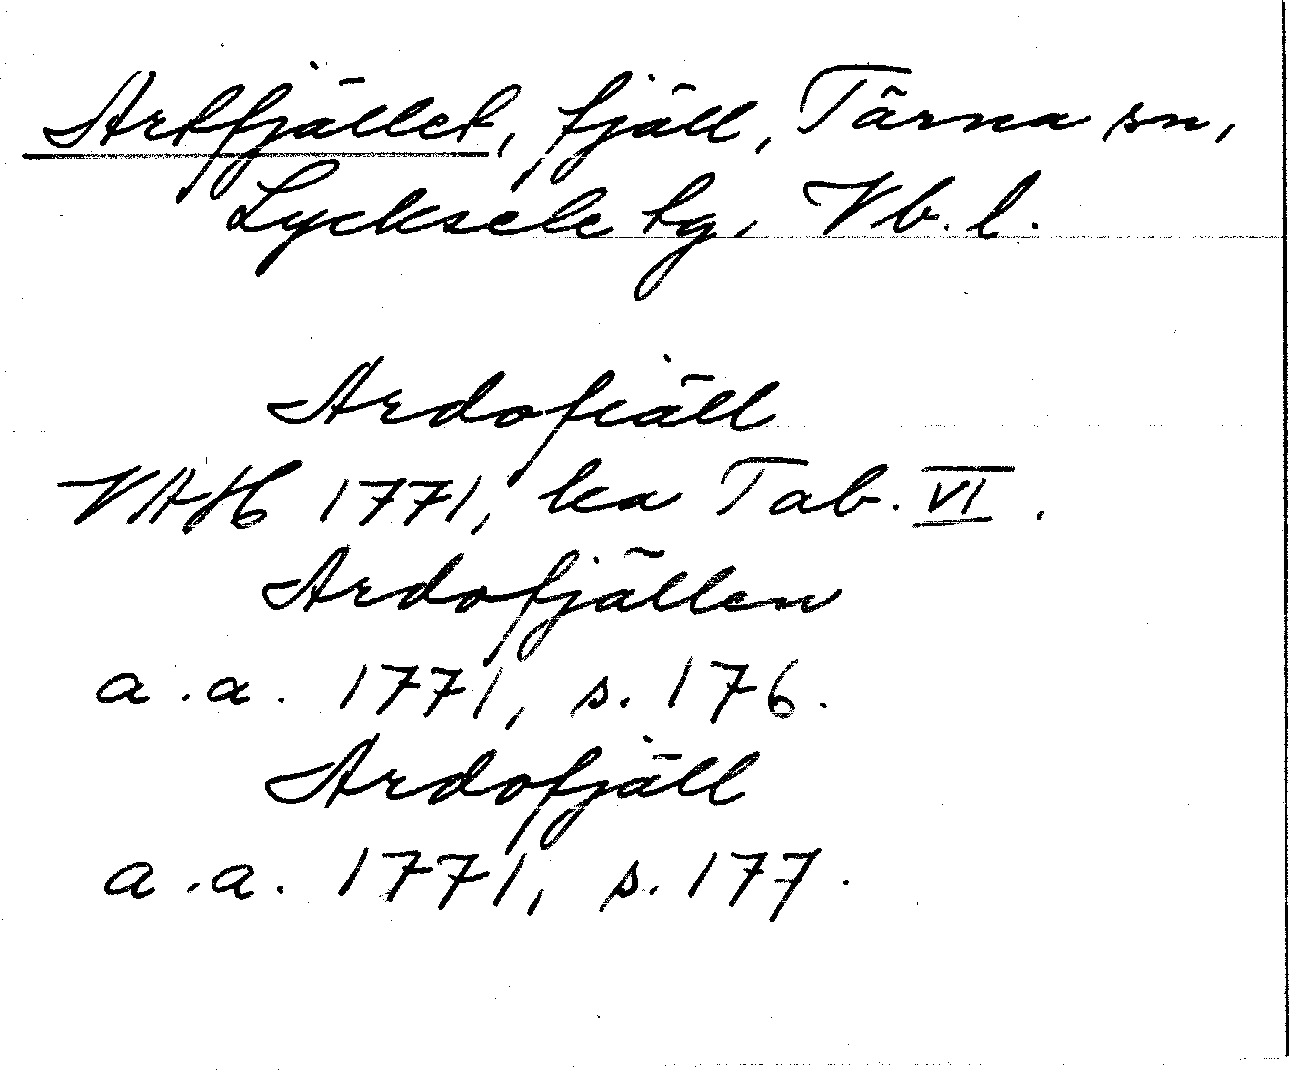 Artfjället, fjäll, Tärna sn,
Lycksele tg, Vb. l.
Ardofiäll
VAH 1771, ka Tab. VI.
Ardofjällen
a.a. 1771, s. 176.
Ardofjäll
a.a. 1771, s. 177.